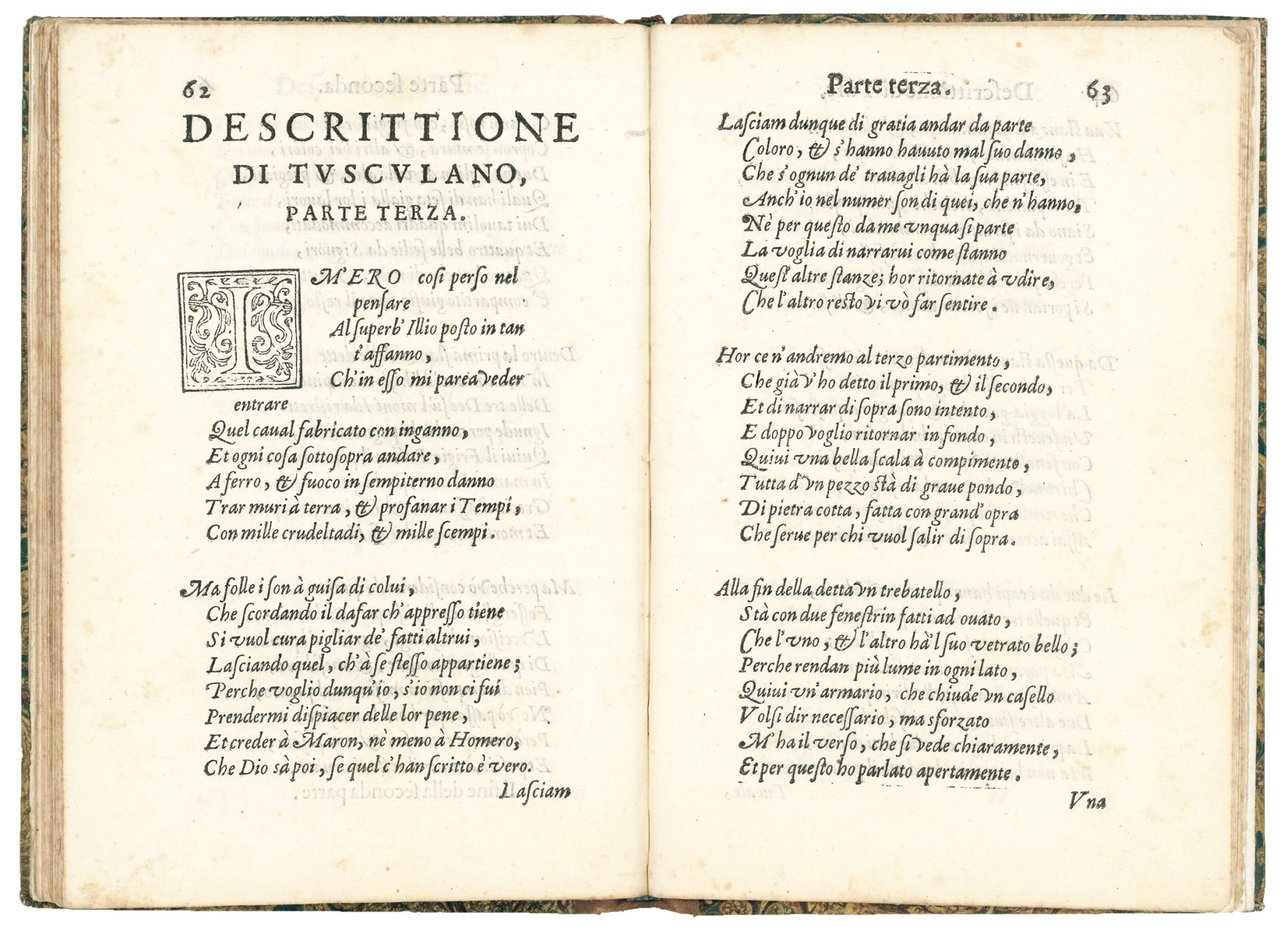 62
DESCRITTIONE
DI TVSCVLANO,
PARTE TERZA.
IM'ERO così perso nel
pensare
Al superb' Illio posto in tan
t'affanno,
Ch'in esso mi parea veder
entrare
Quel caual fabricato con inganno,
Et ogni cosa sottosopra andare,
A ferro, & fuoco in sempiterno danno
Trar muri à terra, & profanar i Tempi,
Con mille crudeltadi, & mille scempi.
Ma folle i son à guisa di colui,
Che scordando il dafar ch'appresso tiene
Si vuol cura pigliar de' fatti altrui,
Lasciando quel, ch'à se stesso appartiene;
Perche voglio dunqu'io, s'io non ci fui
Prendermi dispiacer delle lor pene,
Et creder à Maron, nè meno à Homero,
Che Dio sà poi, se quel c'han scritto è vero.
Lasciam
Parte terza. 63
Lasciam dunque di gratia andar da parte
Coloro, & s'hanno hauuto mal suo danno,
Che s'ognun de' trauagli hà la sua parte,
Anch'io nel numer son di quei, che n'hanno,
Nè per questo da me vnqua si parte
La voglia di narrarui come stanno
Quest'altre stanze; hor ritornate à vdire,
Che l'altro resto vi vò far sentire.
Hor ce n'andremo al terzo partimento,
Che già v'ho detto il primo, & il secondo,
Et di narrar di sopra sono intento,
E doppo voglio ritornar in fondo,
Quiui vna bella scala à compimento,
Tutta d'vn pezzo stà di graue pondo,
Di pietra cotta, fatta con grand'opra
Che serue per chi vuol salir di sopra.
Alla fin della detta vn trebatello,
Stà con due fenestrin fatti ad ouato,
Che l'vno, & l'altro hà'l suo vetrato bello;
Perche rendan più lume in ogni lato,
Quiui vn'armario, che chiude vn casello
Volsi dir necessario, ma sforzato
M'ha il verso, che si vede chiaramente,
Et per questo ho parlato apertamente.
Vna